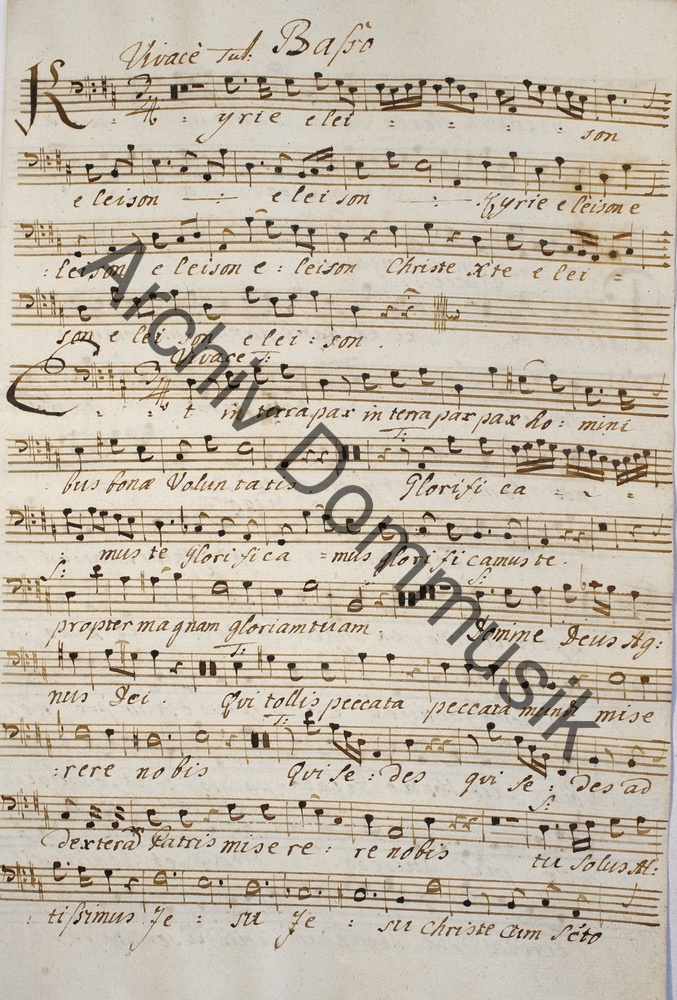 Vivace Tutt: Basso
Kyrie elei : : : son
eleison eleison Kyrie eleison e
: leison e leison e : leison Christe Xte e lei =
son e lei son e lei : son .
Vivace S:
Et in terra pax in terra pax pax ho : mini
T:
bus bonæ Voluntatis . Glorifi ca
: mus te glorifica = mus glorificamus te .
S: S:
propter magnam gloriam tuam . Domine Deus Ag:
T:
nus Dei . Qui tollis peccata peccata mundi mise
T:
: rere nobis Qui se : des qui se : des ad
S:
dexteram Patris misere re : re nobis tu solus Al:
: tissimus Je : su Je : su Christe Cum Scto
Archiv Dommusik